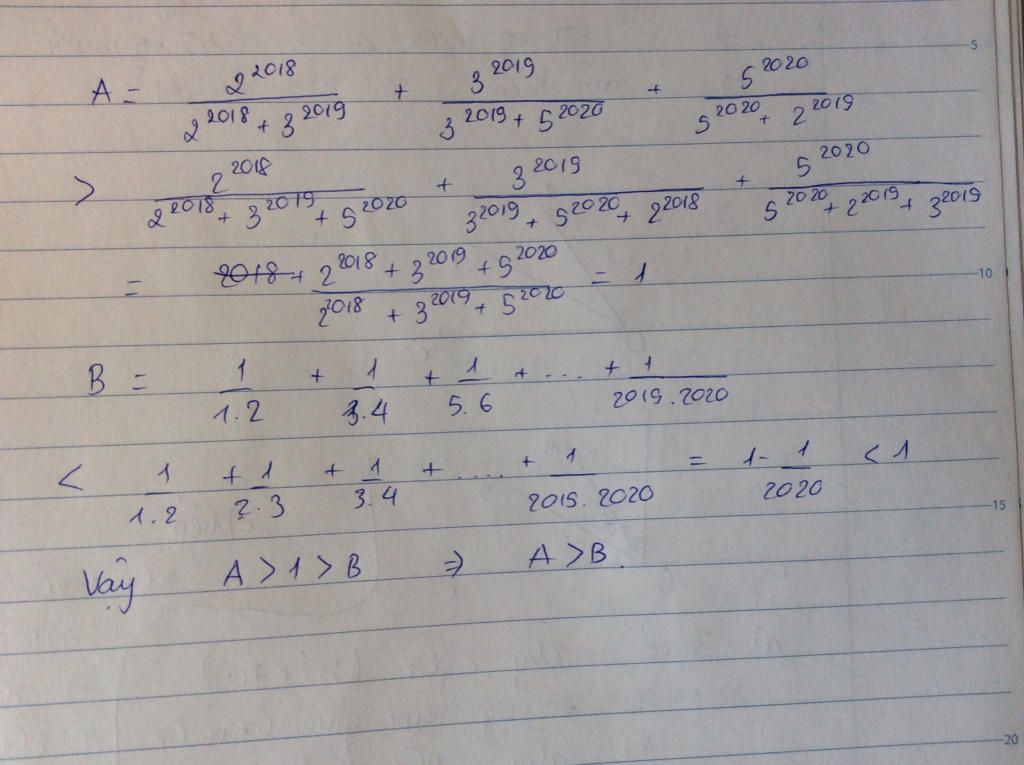 A = \frac{2^{2018}}{2^{2018} + 3^{2019}} + \frac{3^{2019}}{3^{2019} + 5^{2020}} + \frac{5^{2020}}{5^{2020} + 2^{2019}}
> \frac{2^{2018}}{2^{2018} + 3^{2019} + 5^{2020}} + \frac{3^{2019}}{3^{2019} + 5^{2020} + 2^{2018}} + \frac{5^{2020}}{5^{2020} + 2^{2019} + 3^{2019}}
= \frac{~~2018 +~~ 2^{2018} + 3^{2019} + 5^{2020}}{2^{2018} + 3^{2019} + 5^{2020}} = 1
B = \frac{1}{1.2} + \frac{1}{3.4} + \frac{1}{5.6} + .... + \frac{1}{2019.2020}
< \frac{1}{1.2} + \frac{1}{2.3} + \frac{1}{3.4} + ..... + \frac{1}{2019.2020} = 1 - \frac{1}{2020} < 1
Vậy A > 1 > B => A > B.
5
10
15
20